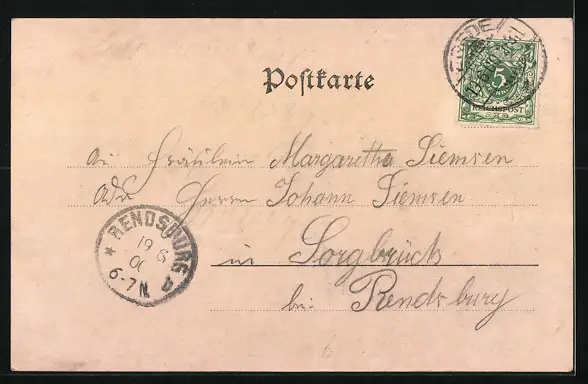 Postkarte
5
REICHSPOST
An Fräulein Margaretha Siemsen
Adr Herrn Johann Siemsen
in Sorgbrück
bei Rendsburg
* RENDSBURG
19 6
00
6-7N